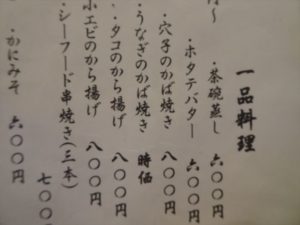 一品料理
・茶碗蒸し 六〇〇円
・ホタテバター 六〇〇円
・穴子のかば焼き 八〇〇円
・うなぎのかば焼き 時価
・タコのから揚げ 八〇〇円
小エビのから揚げ 八〇〇円
・シーフード串焼き(三本) 七〇〇
・かにみそ 六〇〇円